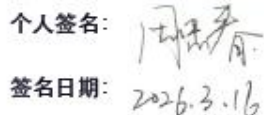 个人签名:
签名日期: 2026.3.16